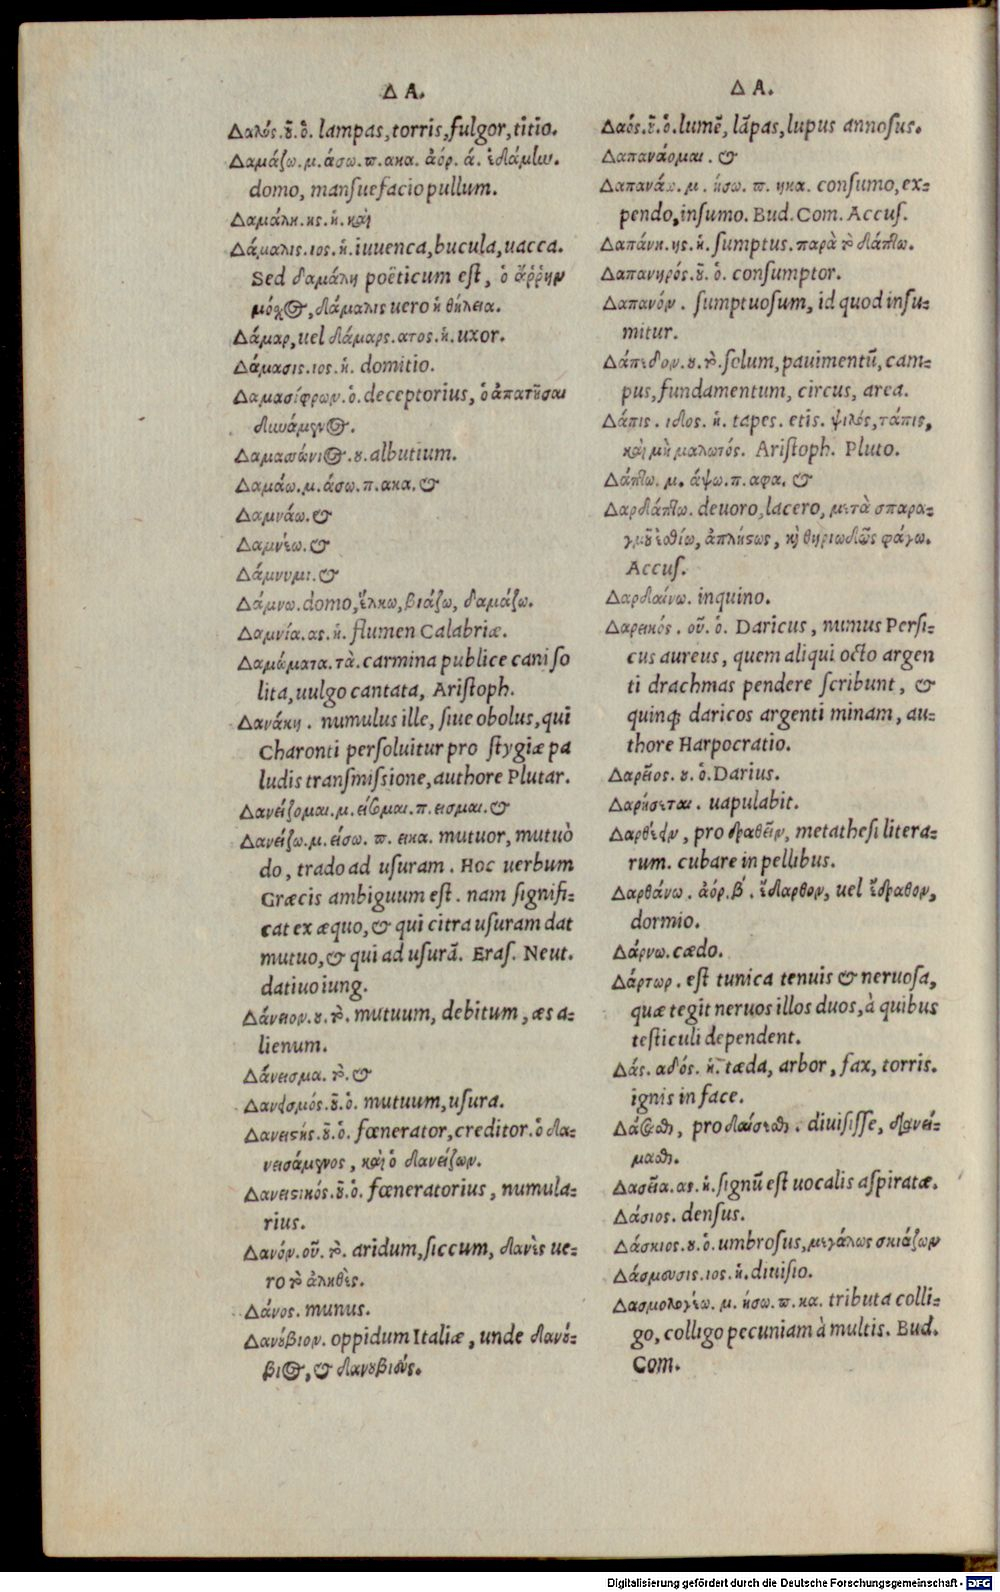 Δ Α.
Δαλός.ȣ͂.ὁ. lampas, torris, fulgor, titio.
Δαμάζω.μ.άσω.π.ακα. ἀόρ. ά. ἐδάμων.
domo, mansuefacio pullum.
Δαμάλη.ης.ἡ. καὶ
Δάμαλις.ιος.ἡ. iuuenca, bucula, uacca.
Sed δαμάλη poëticum est, ὁ ἄῤῥην
μόχος, δάμαλις uero ἡ θήλεια.
Δάμαρ, uel δάμαρς.ατος.ἡ. uxor.
Δάμασις.ιος.ἡ. domitio.
Δαμασίφρων.ὁ. deceptorius, ὁ ἀπατῆσαι
δυνάμενος.
Δαμασώνιος.ȣ. albutium.
Δαμάω.μ.άσω.π.ακα. &
Δαμνάω. &
Δαμνέω. &
Δάμνυμι. &
Δάμνω. domo, ἕλκω, βιάζω, δαμάζω.
Δαμνία.ας.ἡ. flumen Calabriæ.
Δαμώματα.τὰ. carmina publice cani so
lita, uulgo cantata, Aristoph.
Δανάκη. numulus ille, siue obolus, qui
Charonti persoluitur pro stygiæ pa
ludis transmissione, authore Plutar.
Δανείζομαι.μ.είσομαι.π.εισμαι. &
Δανείζω.μ.είσω.π.εικα. mutuor, mutuò
do, trado ad usuram. Hoc uerbum
Græcis ambiguum est. nam signifi-
cat ex æquo, & qui citra usuram dat
mutuo, & qui ad usurā. Eras. Neut.
datiuo iung.
Δάνειον.ȣ.τὸ. mutuum, debitum, æs a-
lienum.
Δάνεισμα.τὸ. &
Δανεισμός.ȣ͂.ὁ. mutuum, usura.
Δανειστής.ȣ͂.ὁ. fœnerator, creditor. ὁ δα-
νεισάμενος, καὶ ὁ δανείζων.
Δανειστικός.ȣ͂.ὁ. fœneratorius, numula-
rius.
Δανόν.οῦ.τὸ. aridum, siccum, δανὲς ue-
ro τὸ ἀληθὲς.
Δάνος. munus.
Δανȣ́βιον. oppidum Italiæ, unde δανȣ́-
βιος, & δανȣβιεύς.
Δ Α.
Δαός.ȣ͂.ὁ. lumē, lāpas, lupus annosus.
Δαπανάομαι. &
Δαπανάω.μ.ήσω.π.ηκα. consumo, ex-
pendo, insumo. Bud. Com. Accus.
Δαπάνη.ης.ἡ. sumptus. παρὰ τὸ δάπτω.
Δαπανηρός.ȣ͂.ὁ. consumptor.
Δαπανόν. sumptuosum, id quod insu-
mitur.
Δάπεδον.ȣ.τὸ. solum, pauimentū, cam-
pus, fundamentum, circus, area.
Δάπις.ιδος.ἡ. tapes. etis. ψιλός, τάπις,
καὶ μὴ μαλωτός. Aristoph. Pluto.
Δάπτω.μ.άψω.π.αφα. &
Δαρδάπτω. deuoro, lacero, μετὰ σπαρα-
γμȣ͂ ἐσθίω, ἀπλήστως, καὶ θηριωδῶς φάγω.
Accus.
Δαρδαίνω. inquino.
Δαρεικός.οῦ.ὁ. Daricus, numus Persi-
cus aureus, quem aliqui octo argen
ti drachmas pendere scribunt, &
quinq; daricos argenti minam, au-
thore Harpocratio.
Δαρεῖος.ȣ.ὁ. Darius.
Δαρήσεται. uapulabit.
Δαρθεῖν, pro δραθεῖν, metathesi litera-
rum. cubare in pellibus.
Δαρθάνω. ἀόρ.β΄. ἔδαρθον, uel ἔδραθον,
dormio.
Δάρνω. cædo.
Δάρτωρ. est tunica tenuis & neruosa,
quæ tegit neruos illos duos, à quibus
testiculi dependent.
Δάς.αδός.ἡ. tæda, arbor, fax, torris.
ignis in face.
Δάσαθαι, pro δαίσεθαι. diuisisse, διανεί-
μαθαι.
Δασεῖα.ας.ἡ. signū est uocalis aspiratæ.
Δάσιος. densus.
Δάσκιος.ȣ.ὁ. umbrosus, μεγάλως σκιάζων
Δάσμουσις.ιος.ἡ. diuisio.
Δασμολογέω.μ.ήσω.π.κα. tributa colli-
go, colligo pecuniam à multis. Bud.
Com.
Digitalisierung gefördert durch die Deutsche Forschungsgemeinschaft - DFG